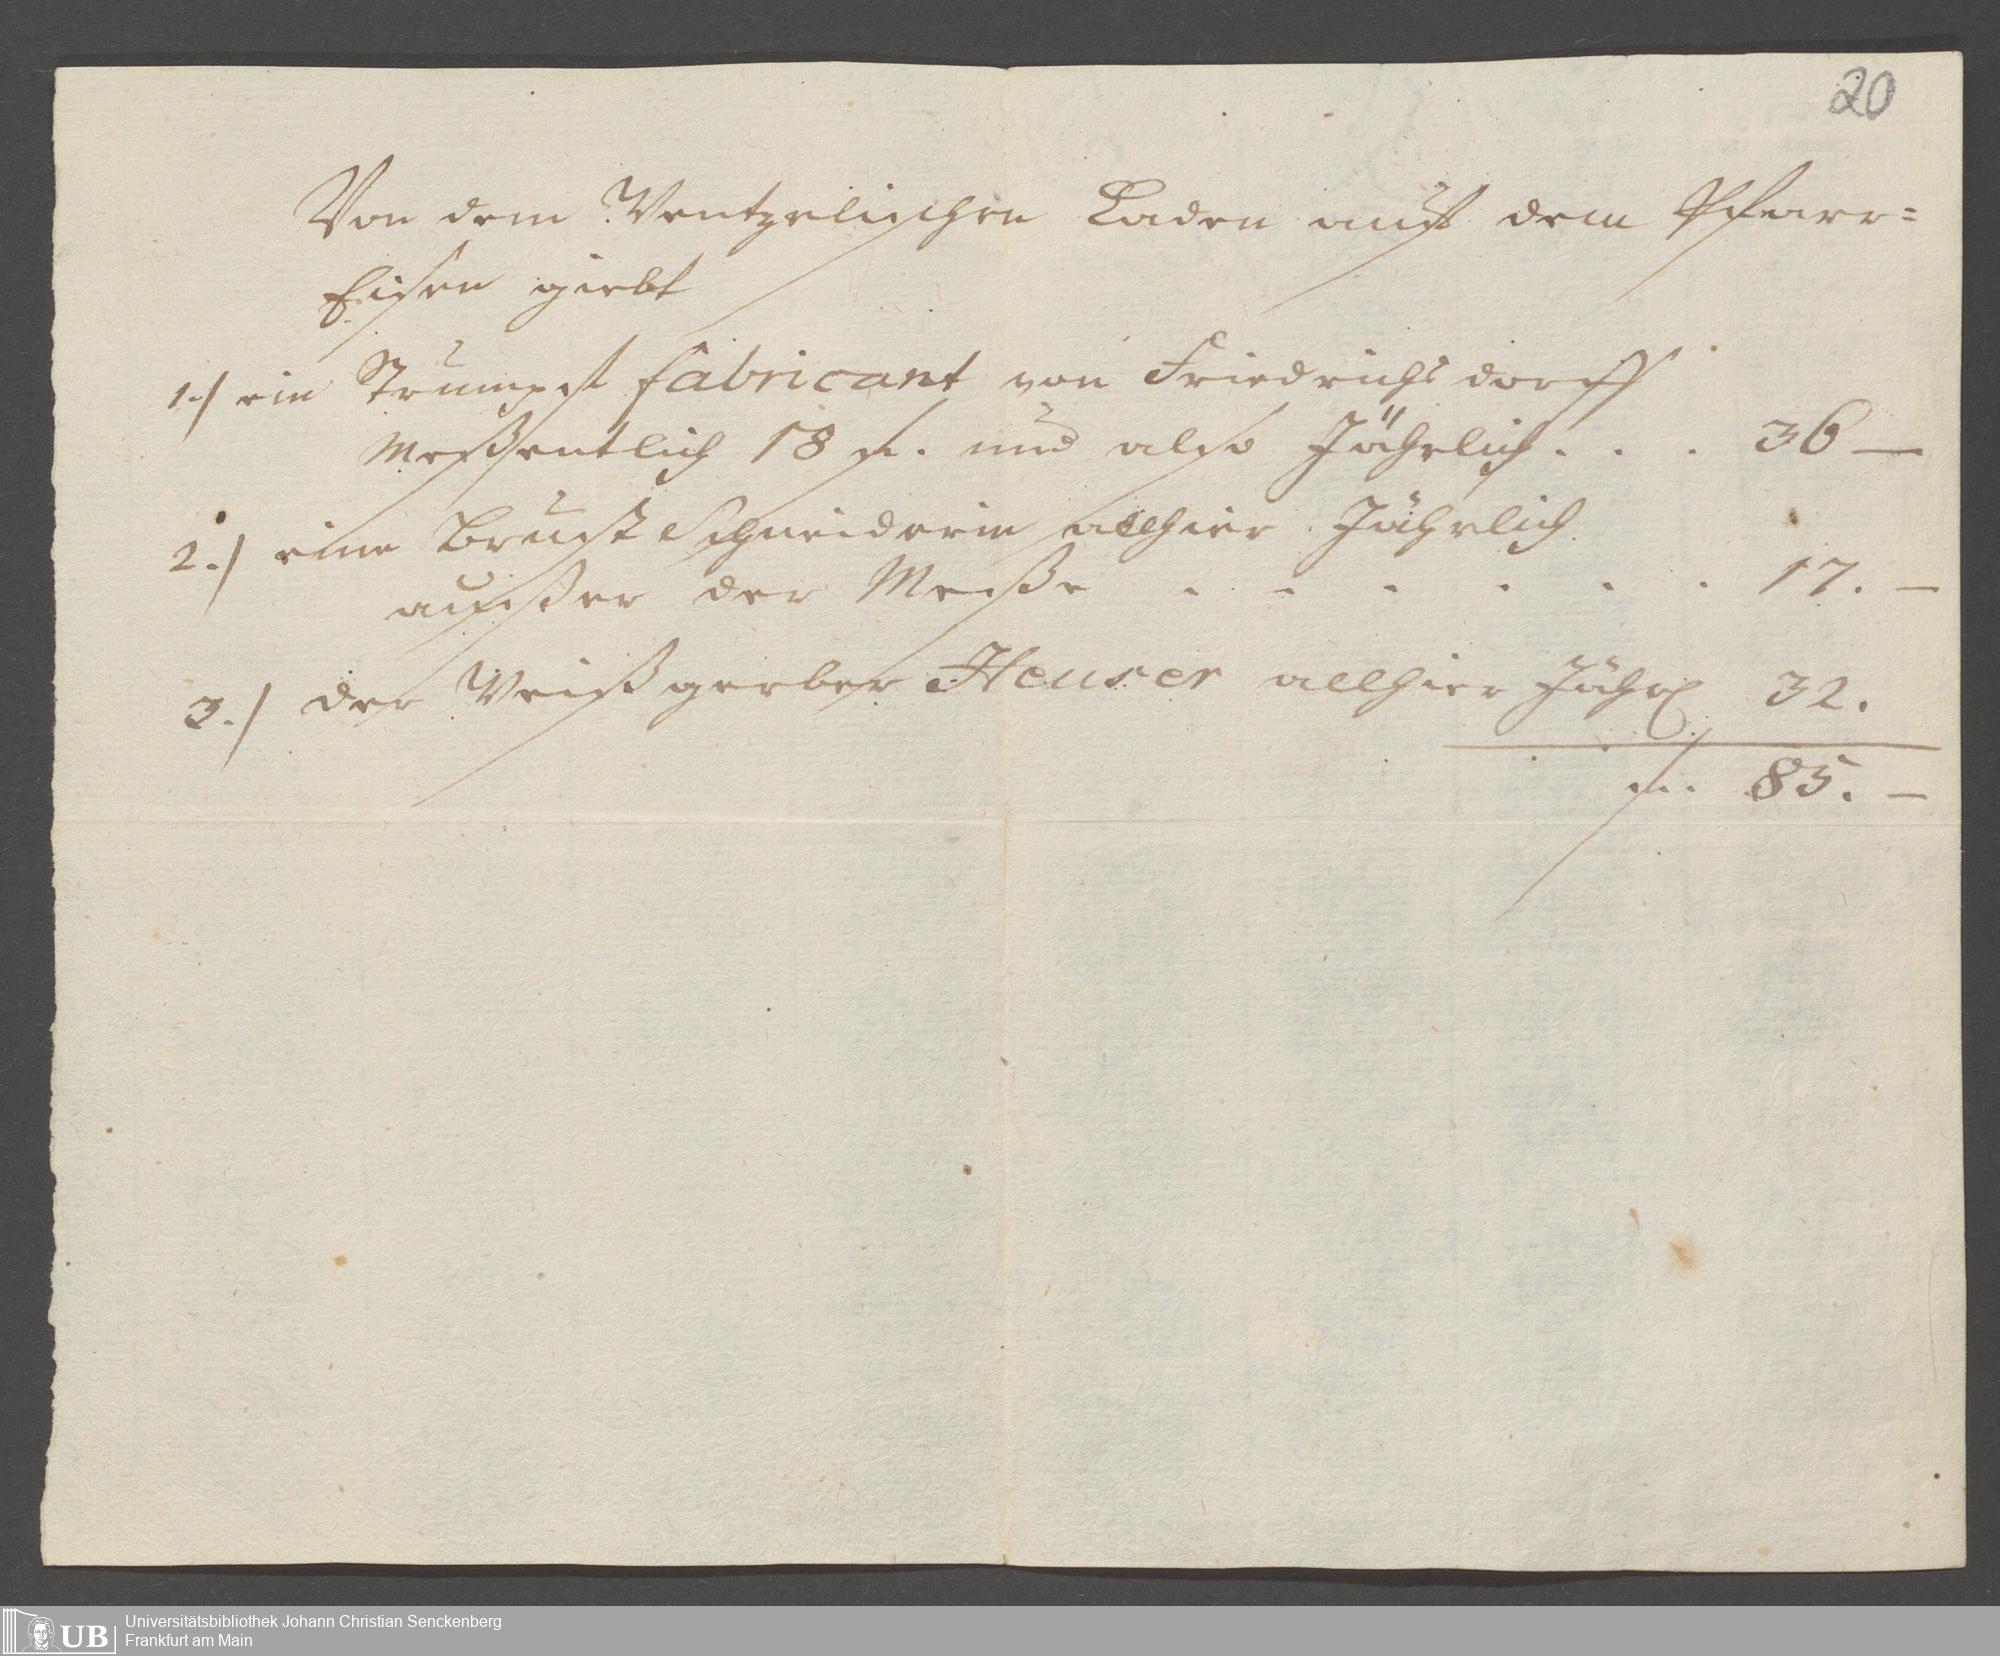 20
Von dem Wentzelischen Laden auf dem Pfarr=
Eisen giebt
1.) ein Strumpf fabricant von Friedrichsdorff
Meßentlich 18 fl. und also Jährlich . . . 36 —
2.) eine Brust Schneiderin allhier Jährlich
auser der Meße . . . . . . 17. —
3.) der Weißgerber Heuser allhier Jährl 32.
fl. 85. —
UB
Universitätsbibliothek Johann Christian Senckenberg
Frankfurt am Main